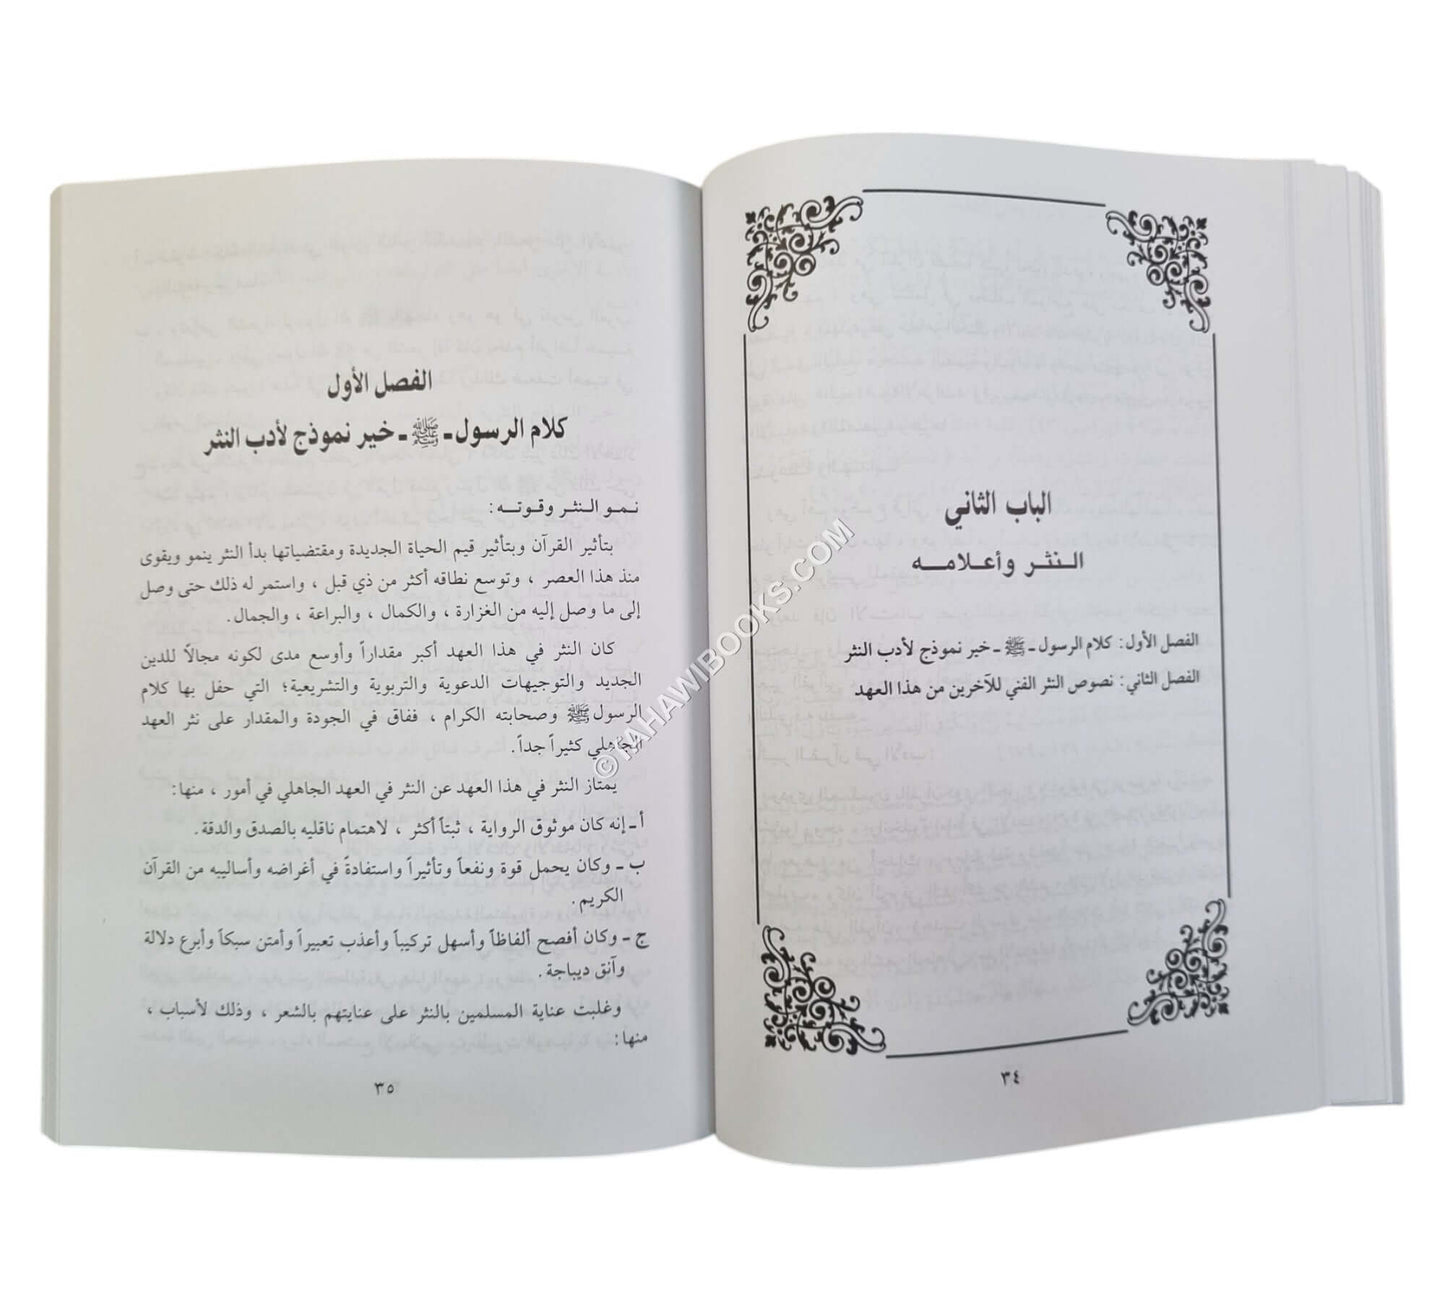 الباب الثاني
الـنثـر وأعـلامـــه
الفصل الأول: كلام الرسول ـ ﷺ ـ خير نموذج لأدب النثر
الفصل الثاني: نصوص النثر الفني للآخرين من هذا العهد
٣٤
الفصل الأول
كلام الرسول ـ ﷺ ـ خير نموذج لأدب النثر
نـمـو الـنثـر وقـوتـــه :
بتأثير القرآن وبتأثير قيم الحياة الجديدة ومقتضياتها بدأ النثر ينمو ويقوى
منذ هذا العصر ، وتوسع نطاقه أكثر من ذي قبل ، واستمر له ذلك حتى وصل
إلى ما وصل إليه من الغزارة ، والكمال ، والبراعة ، والجمال.
كان النثر في هذا العهد أكبر مقداراً وأوسع مدى لكونه مجالاً للدين
الجديد والتوجيهات الدعوية والتربوية والتشريعية؛ التي حفل بها كلام
الرسول ﷺ وصحابته الكرام ، ففاق في الجودة والمقدار على نثر العهد
الجاهلي كثيراً جداً.
يمتاز النثر في هذا العهد عن النثر في العهد الجاهلي في أمور ، منها:
أ ـ إنه كان موثوق الرواية ، ثبتاً أكثر ، لاهتمام ناقليه بالصدق والدقة.
ب ـ وكان يحمل قوة ونفعاً وتأثيراً واستفادةً في أغراضه وأساليبه من القرآن
الكريم.
ج ـ وكان أفصح ألفاظاً وأسهل تركيباً وأعذب تعبيراً وأمتن سبكاً وأبرع دلالة
وآنق ديباجة.
وغلبت عناية المسلمين بالنثر على عنايتهم بالشعر ، وذلك لأسباب ،
منها:
٣٥
© TAHAWIBOOKS.COM